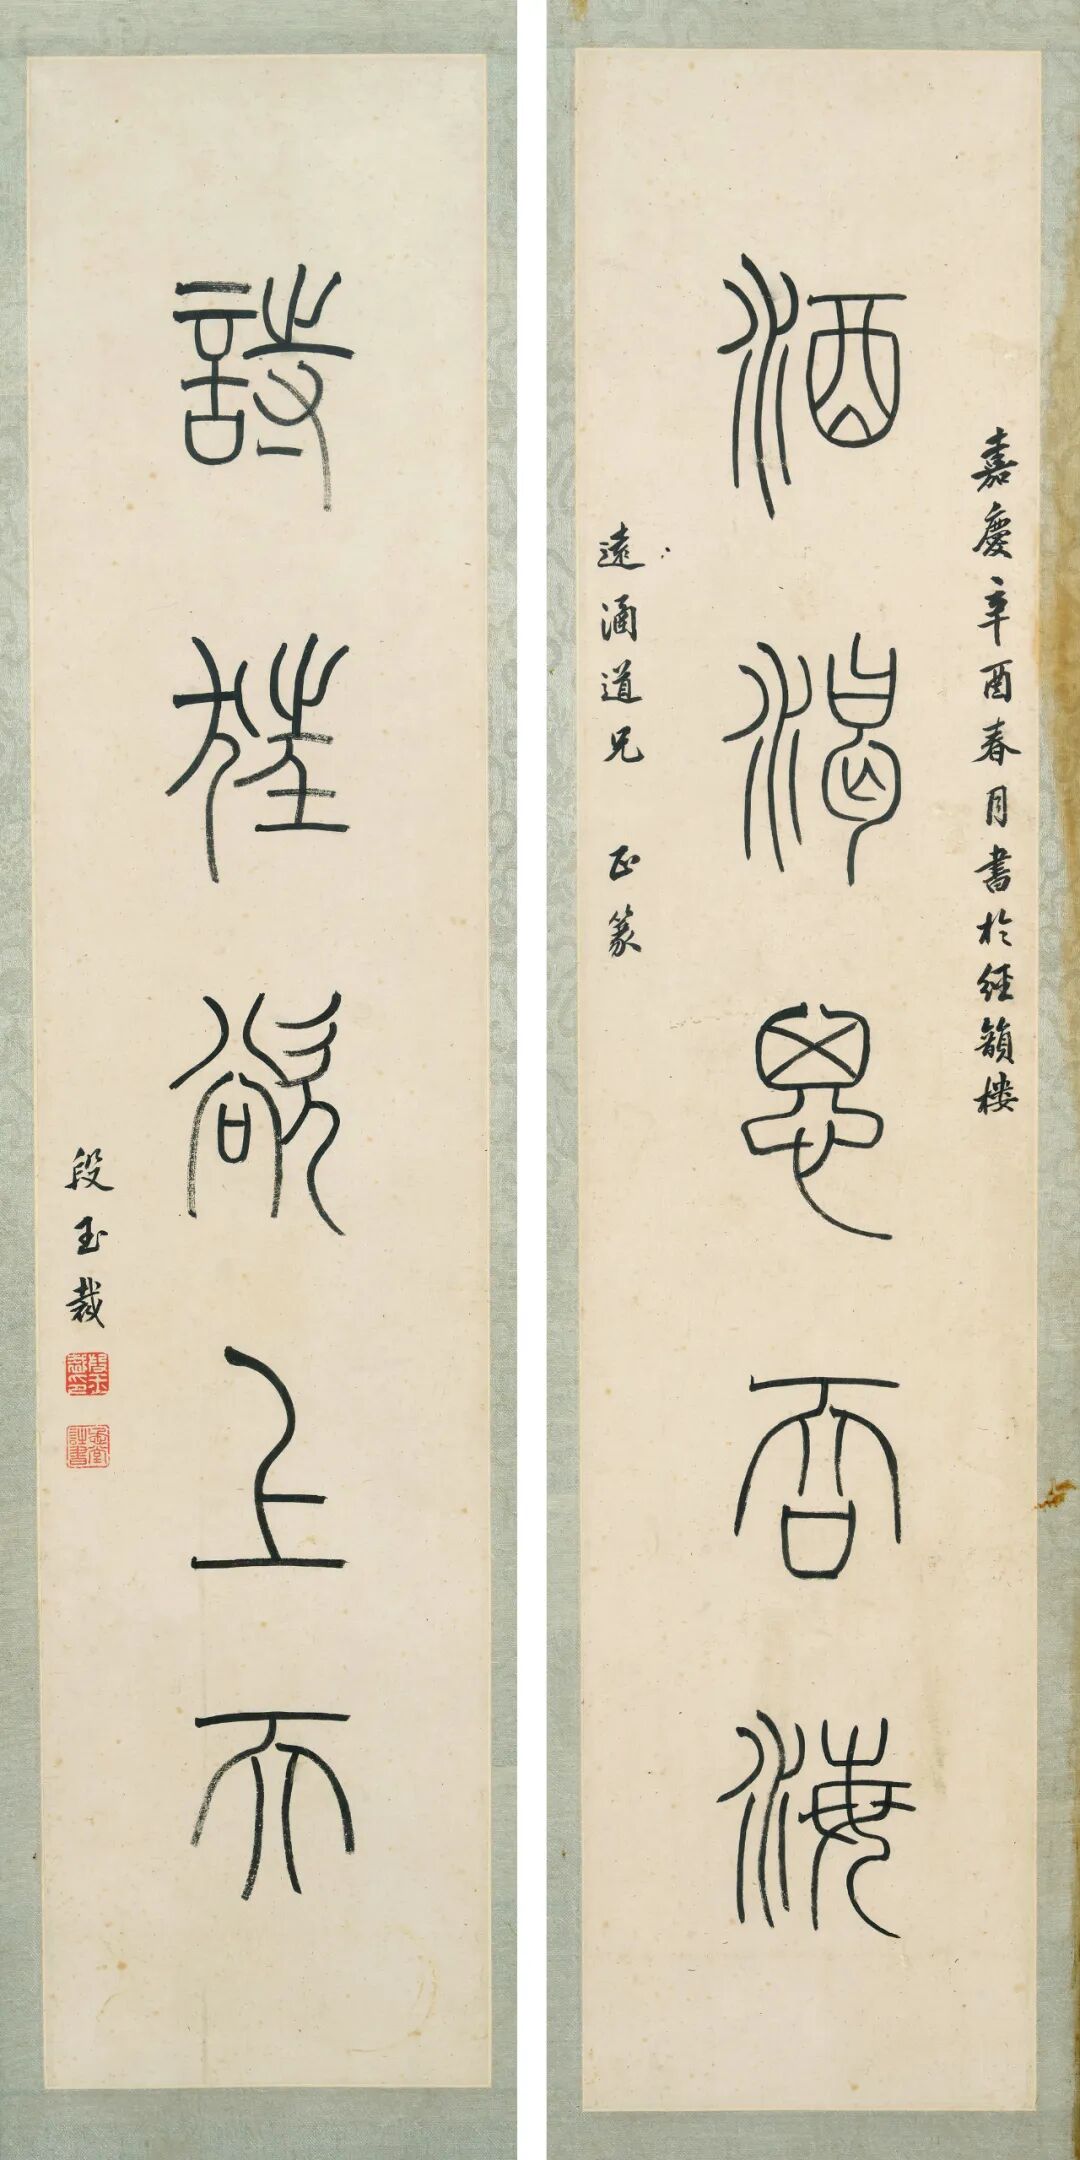 嘉慶辛酉春月書於經韻樓
酒渴思吞海
遠涵道兄 正篆
詩狂欲上天
段玉裁
段玉裁印